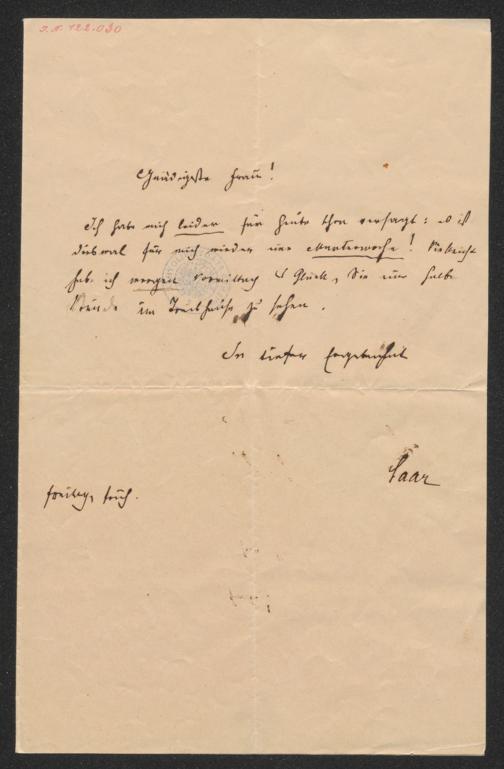 I. N. 122.030
Gnädigste Frau!
Ich habe mich leider für heute schon versagt: es ist
diesmal für mich wieder eine Marterwoche! Vielleicht
habe ich morgen Vormittag d Glück, Sie eine halbe
Stunde im Treibhause zu sehen.
In tiefer Ergebenheit
Saar
Freitag, früh.